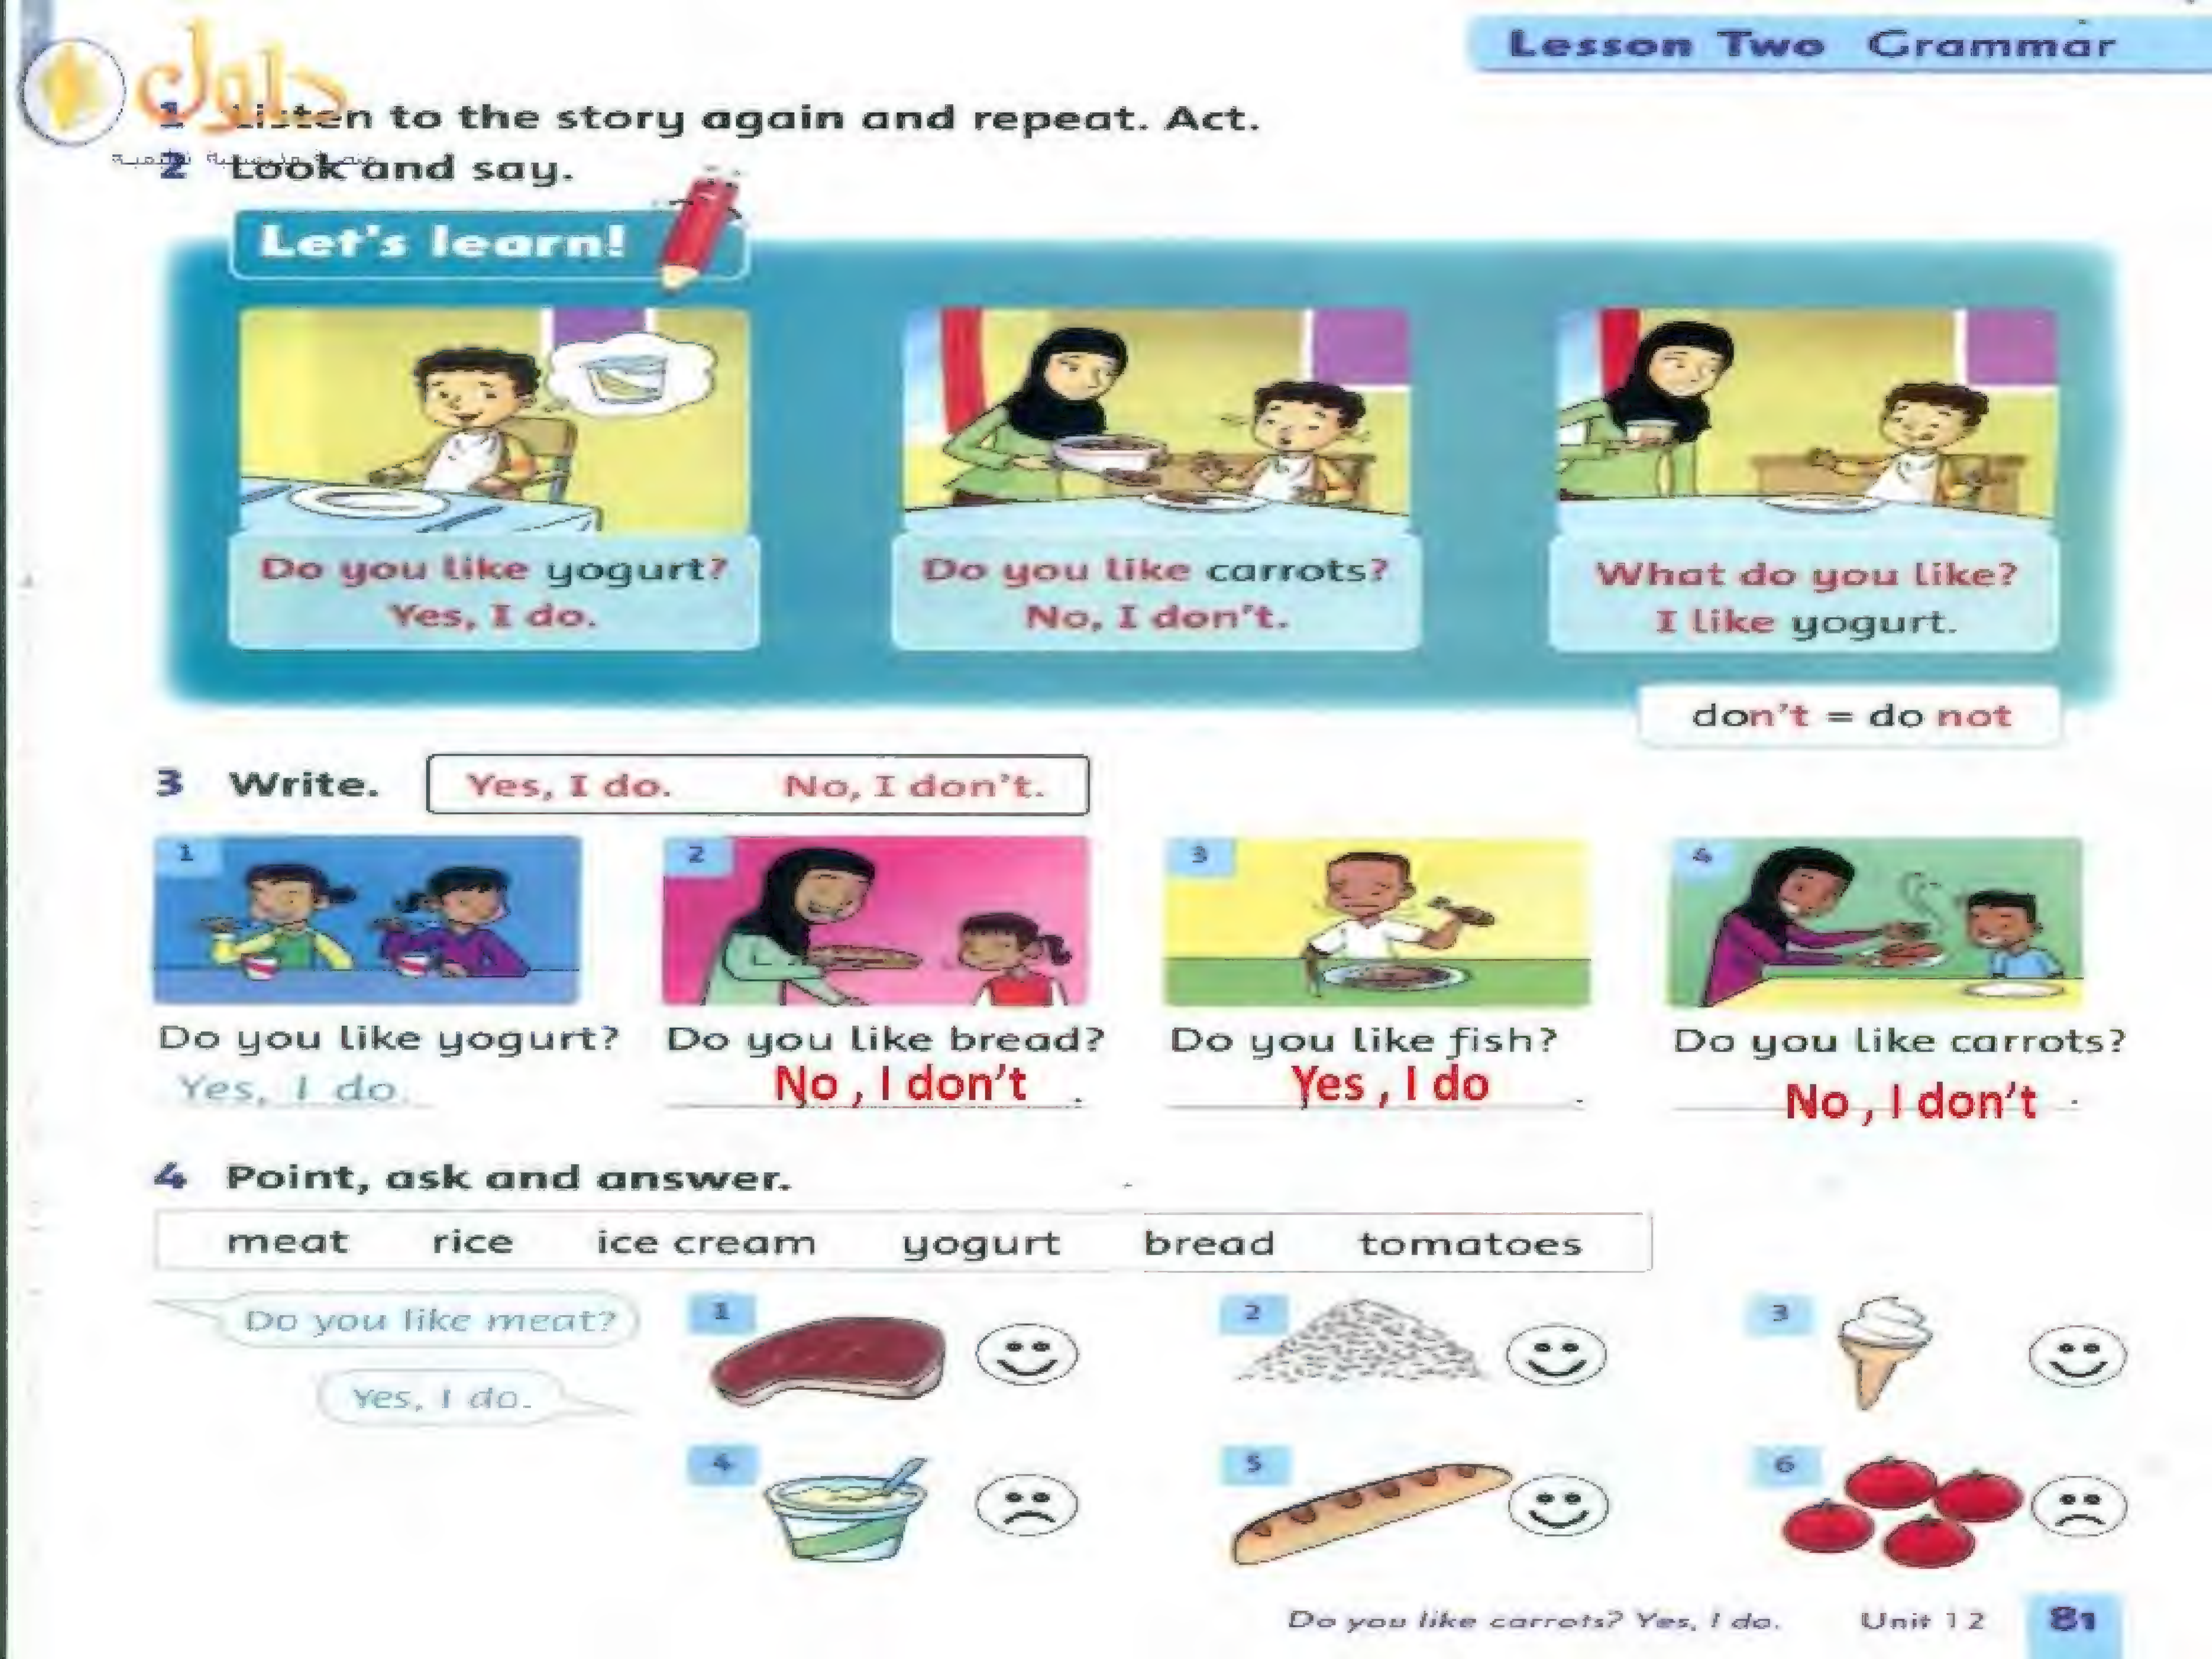 Lesson Two Grammar
حلول
1 Listen to the story again and repeat. Act.
2 Look and say.
Let's learn!
Do you like yogurt?
Yes, I do.
Do you like carrots?
No, I don't.
What do you like?
I like yogurt.
don't = do not
3 Write. Yes, I do. No, I don't.
1
2
3
4
Do you like yogurt? Do you like bread? Do you like fish? Do you like carrots?
Yes, I do. No , I don't . Yes , I do . No , I don't .
4 Point, ask and answer.
meat rice ice cream yogurt bread tomatoes
Do you like meat?
Yes, I do.
1
2
3
4
5
6
Do you like carrots? Yes, I do. Unit 12 81